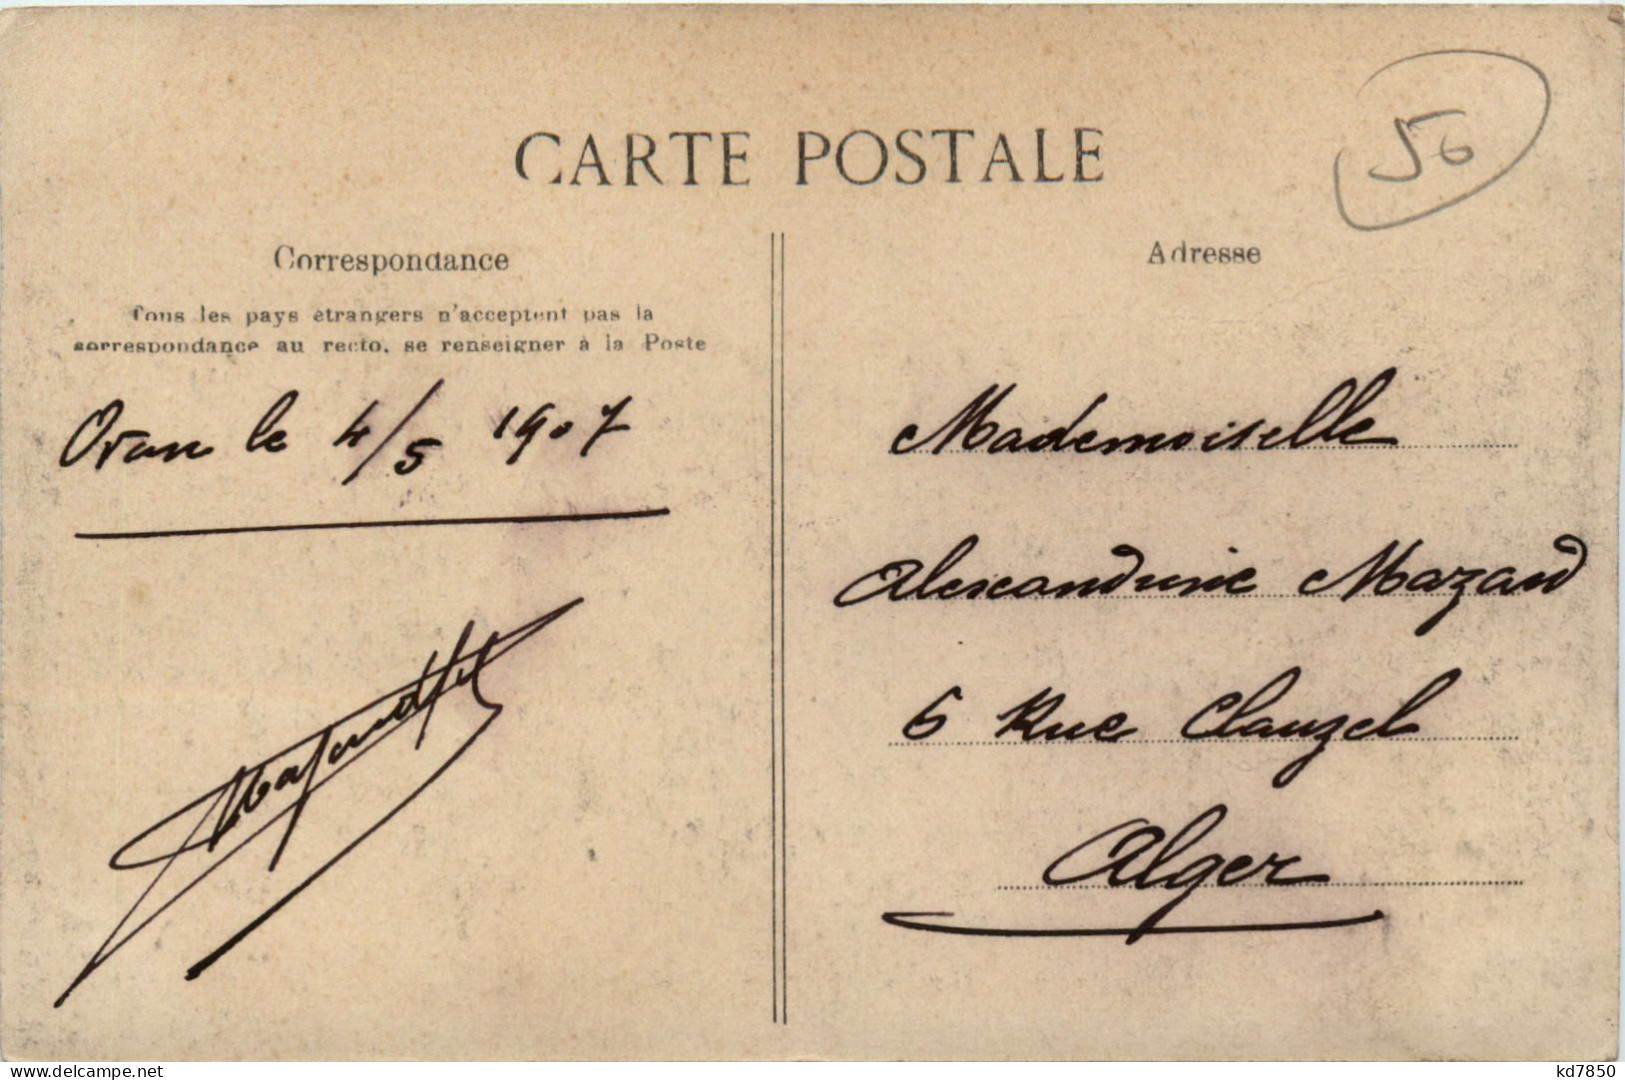 CARTE POSTALE
56
Correspondance
Tous les pays étrangers n'acceptent pas la
correspondance au recto, se renseigner à la Poste
Oran le 4/5 1907
Adresse
Mademoiselle
Alexandrine Mazand
6 Rue Clauzel
Alger
www.delcampe.net
kd7850